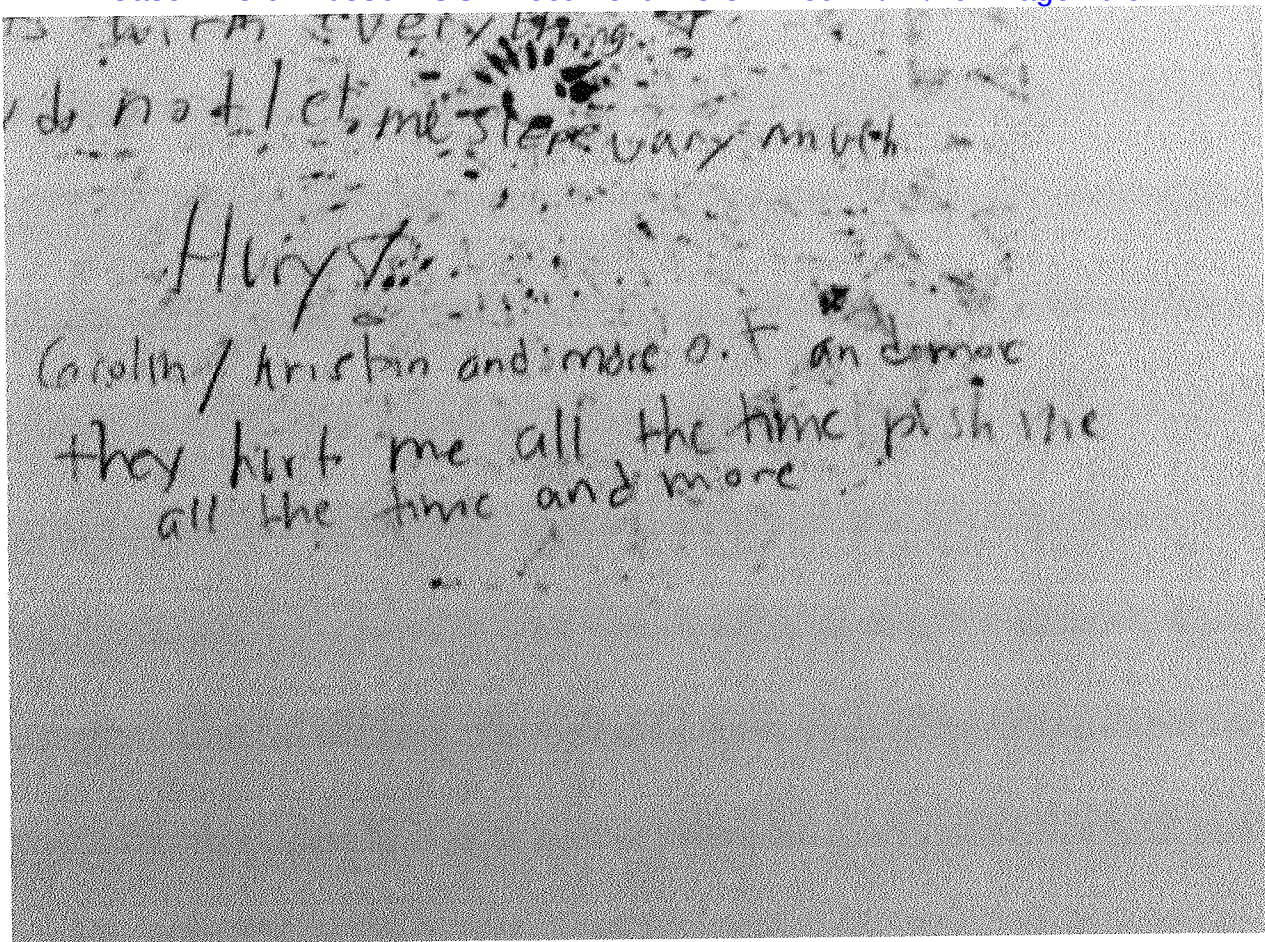 with every thing.
do not let me sleep vary much
Carolin/Kristin and more and more
they hurt me all the time push me
all the time and more